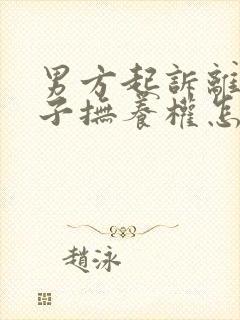 男方起訴離
子撫養權怎
趙泳